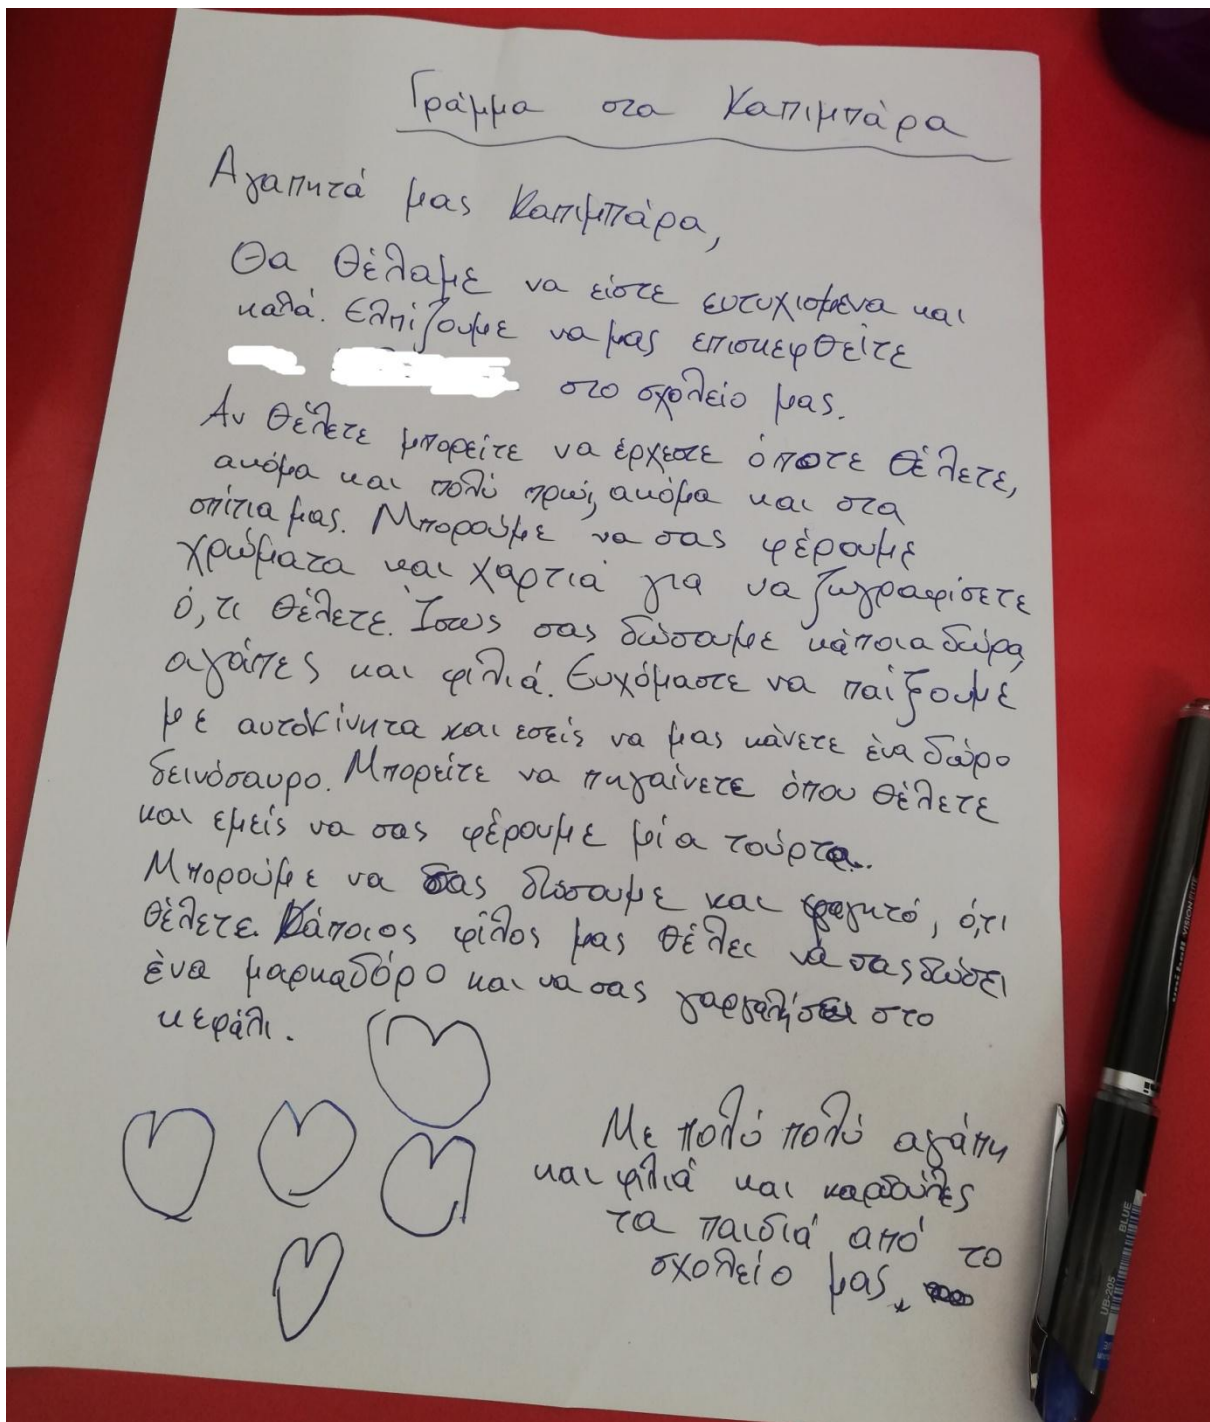 Γράμμα στα Καπιμπάρα
Αγαπητά μας Καπιμπάρα,
Θα θέλαμε να είστε ευτυχισμένα και
καλά. Ελπίζουμε να μας επισκεφθείτε
στο σχολείο μας.
Αν θέλετε μπορείτε να έρχεστε όποτε θέλετε,
ακόμα και πολύ πρωί, ακόμα και στα
σπίτια μας. Μπορούμε να σας φέρουμε
χρώματα και χαρτιά για να ζωγραφίσετε
ό,τι θέλετε. Ίσως σας δώσουμε κάποια δώρα,
αγάπες και φιλιά. Ευχόμαστε να παίξουμε
με αυτοκίνητα και εσείς να μας κάνετε ένα δώρο
δεινόσαυρο. Μπορείτε να πηγαίνετε όπου θέλετε
και εμείς να σας φέρουμε μία τούρτα.
Μπορούμε να σας δώσουμε και φαγητό, ό,τι
θέλετε. Κάποιος φίλος μας θέλει να σας δώσει
ένα μαρκαδόρο και να σας γαργαλήσει στο
κεφάλι.
Με πολύ πολύ αγάπη
και φιλιά και καρδούλες
τα παιδιά από το
σχολείο μας.
uni-ball VISION ELITE
UB-205
BLUE